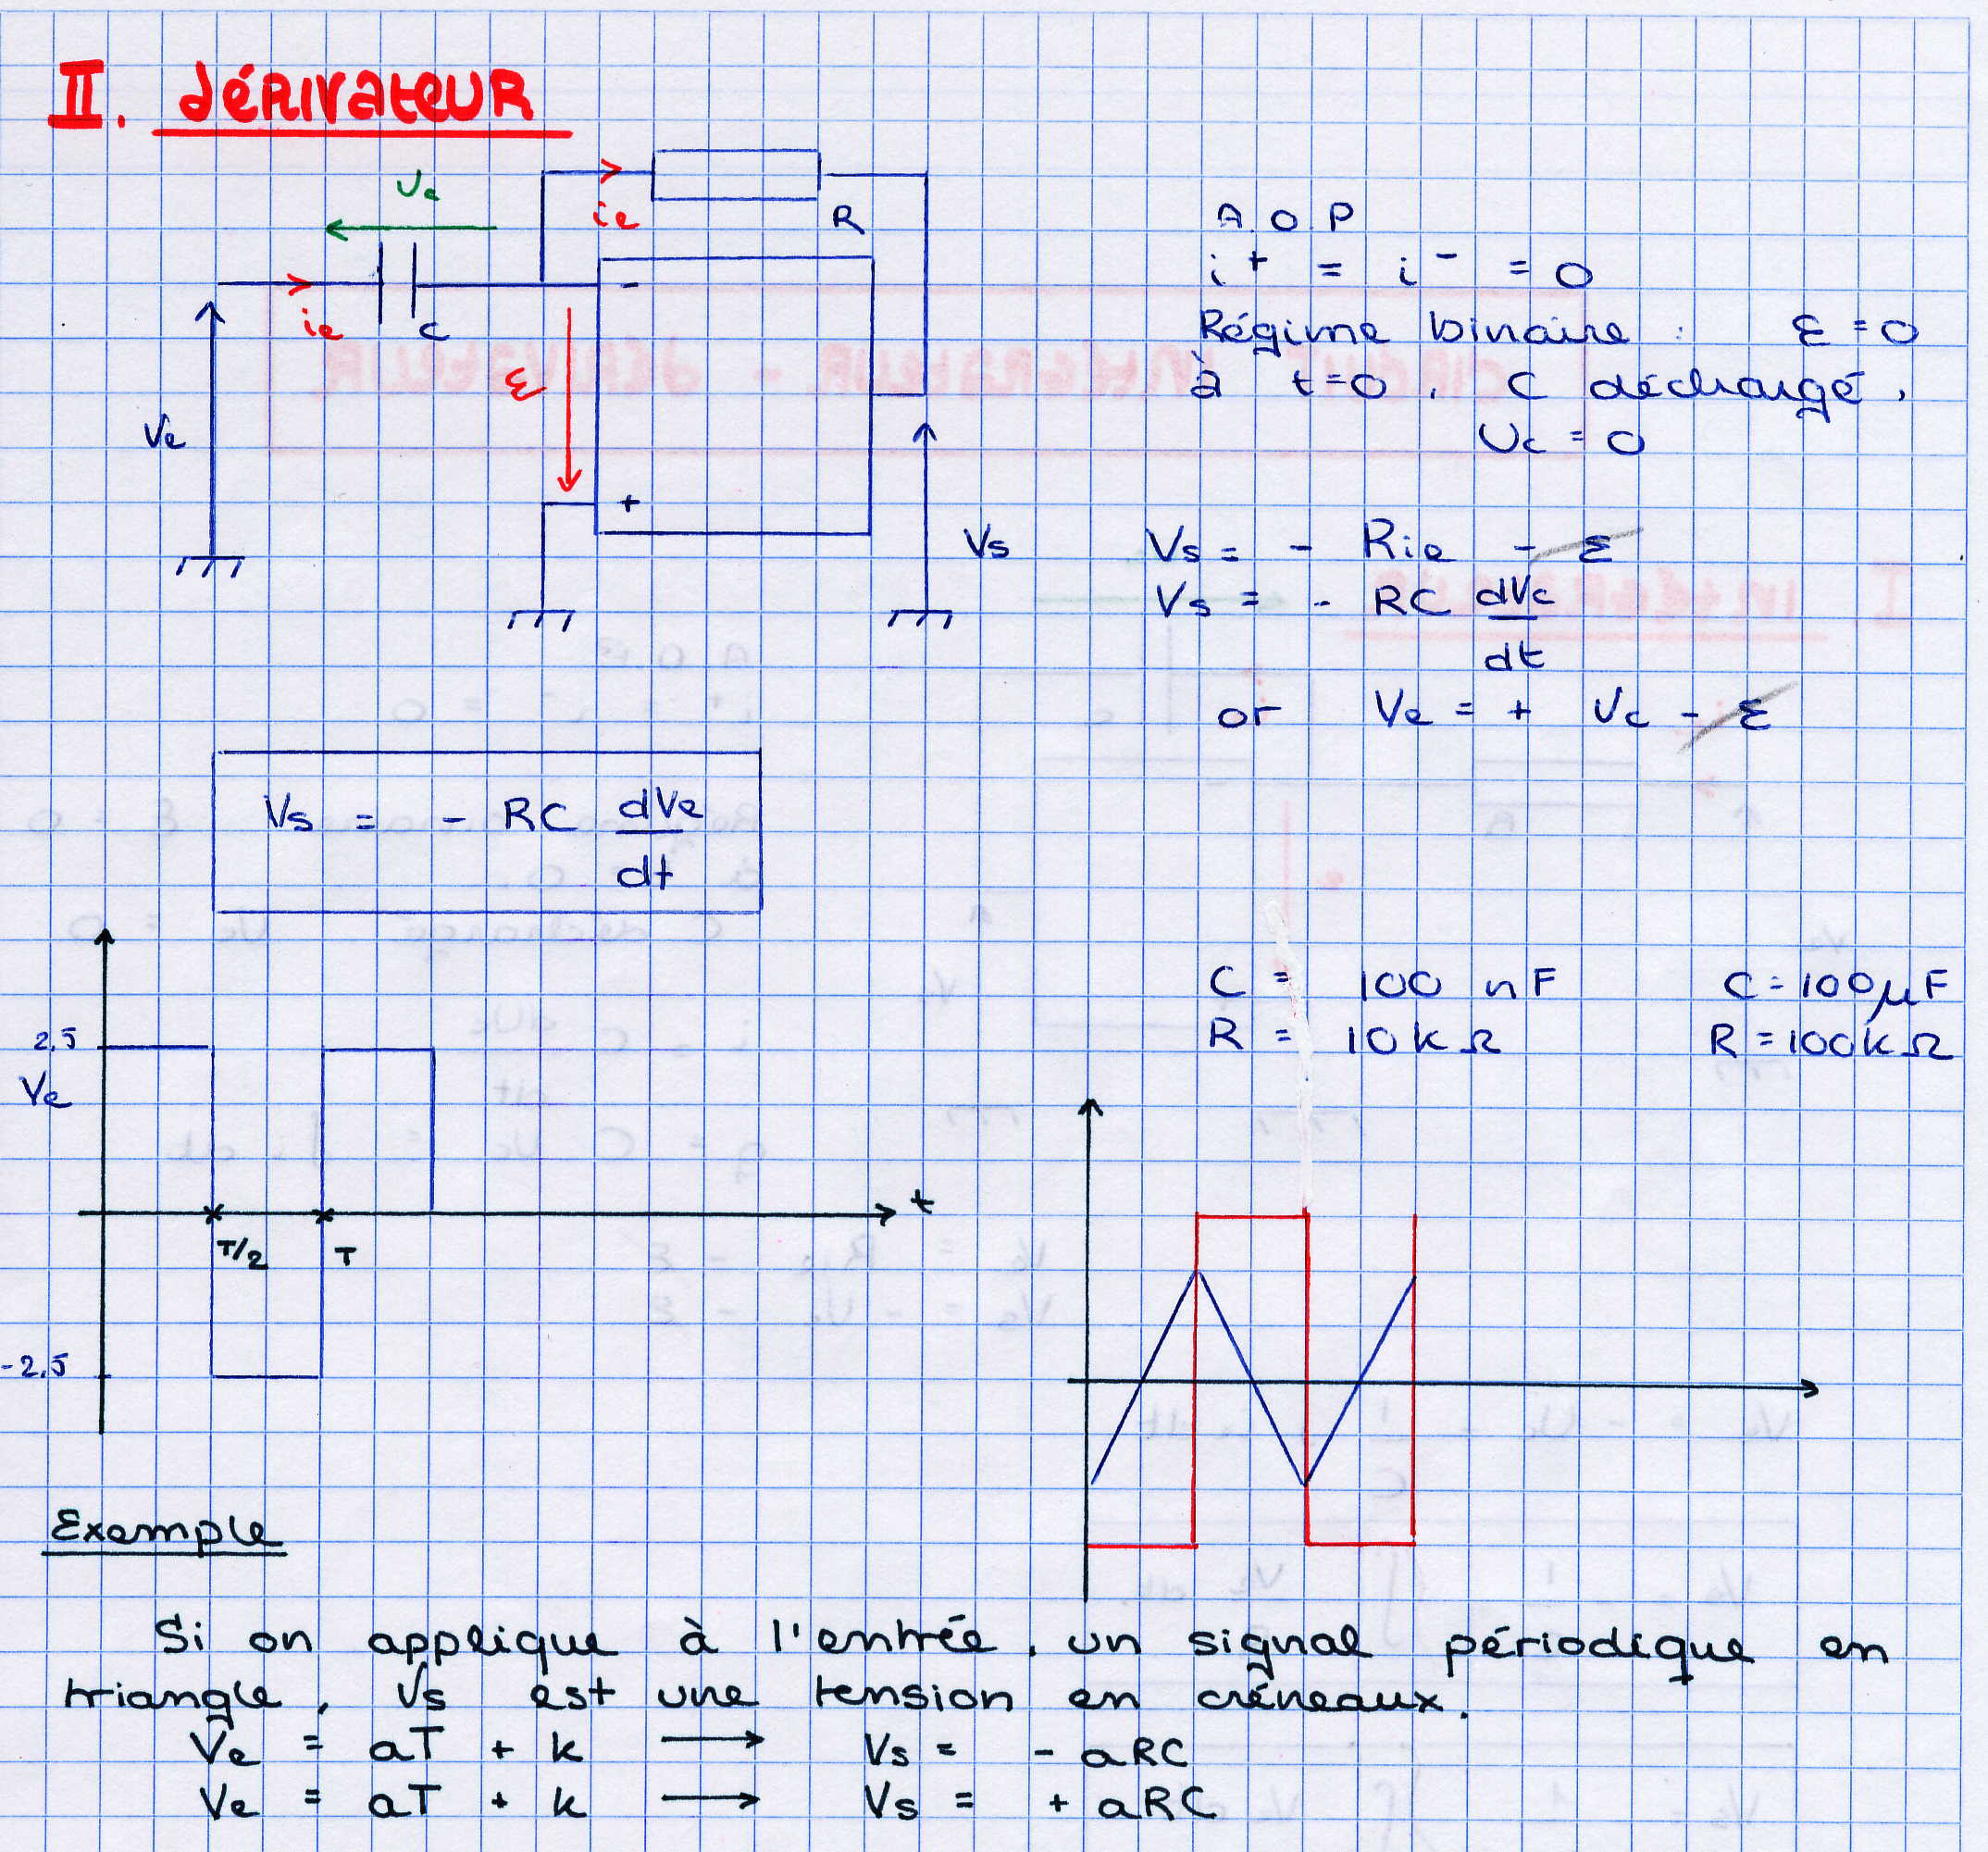 II. DÉRIVATEUR
Uc
ie
R
ie
C
-
ε
Ve
+
Vs
A.O.P
i+ = i- = 0
Régime binaire : ε = 0
à t=0, C déchargé,
Uc = 0
Vs = - Rie - ε
Vs = - RC dVc
dt
or Ve = + Vc - ε
Vs = - RC dVe
dt
C = 100 nF C = 100 μF
R = 10 kΩ R = 100 kΩ
2,5
Ve
t
T/2 T
-2,5
Exemple
Si on applique à l'entrée, un signal périodique en
triangle, Vs est une tension en créneaux.
Ve = aT + k → Vs = - aRC
Ve = aT + k → Vs = + aRC